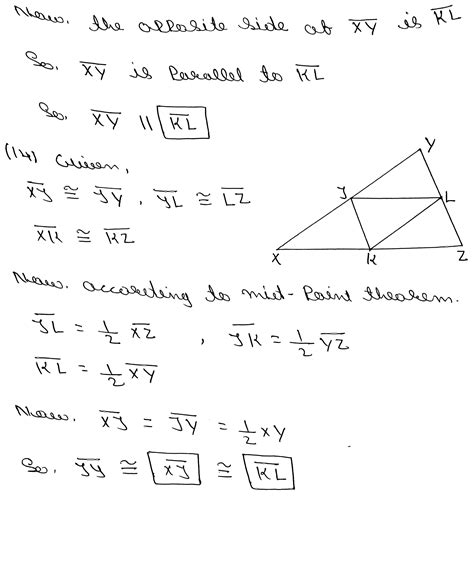 Now. the opposite side of X̅Y̅ is K̅L̅
So. X̅Y̅ is Parallel to K̅L̅
So. X̅Y̅ || K̅L̅
(14) Given,
X̅J̅ ≅ J̅Y̅ , Y̅L̅ ≅ L̅Z̅
X̅K̅ ≅ K̅Z̅
Y
J
L
X
K
Z
Now. according to mid-Point theorem.
J̅L̅ = 1/2 X̅Z̅ , J̅K̅ = 1/2 Y̅Z̅
K̅L̅ = 1/2 X̅Y̅
Now. X̅J̅ = J̅Y̅ = 1/2 XY
So. J̅Y̅ ≅ X̅J̅ ≅ K̅L̅